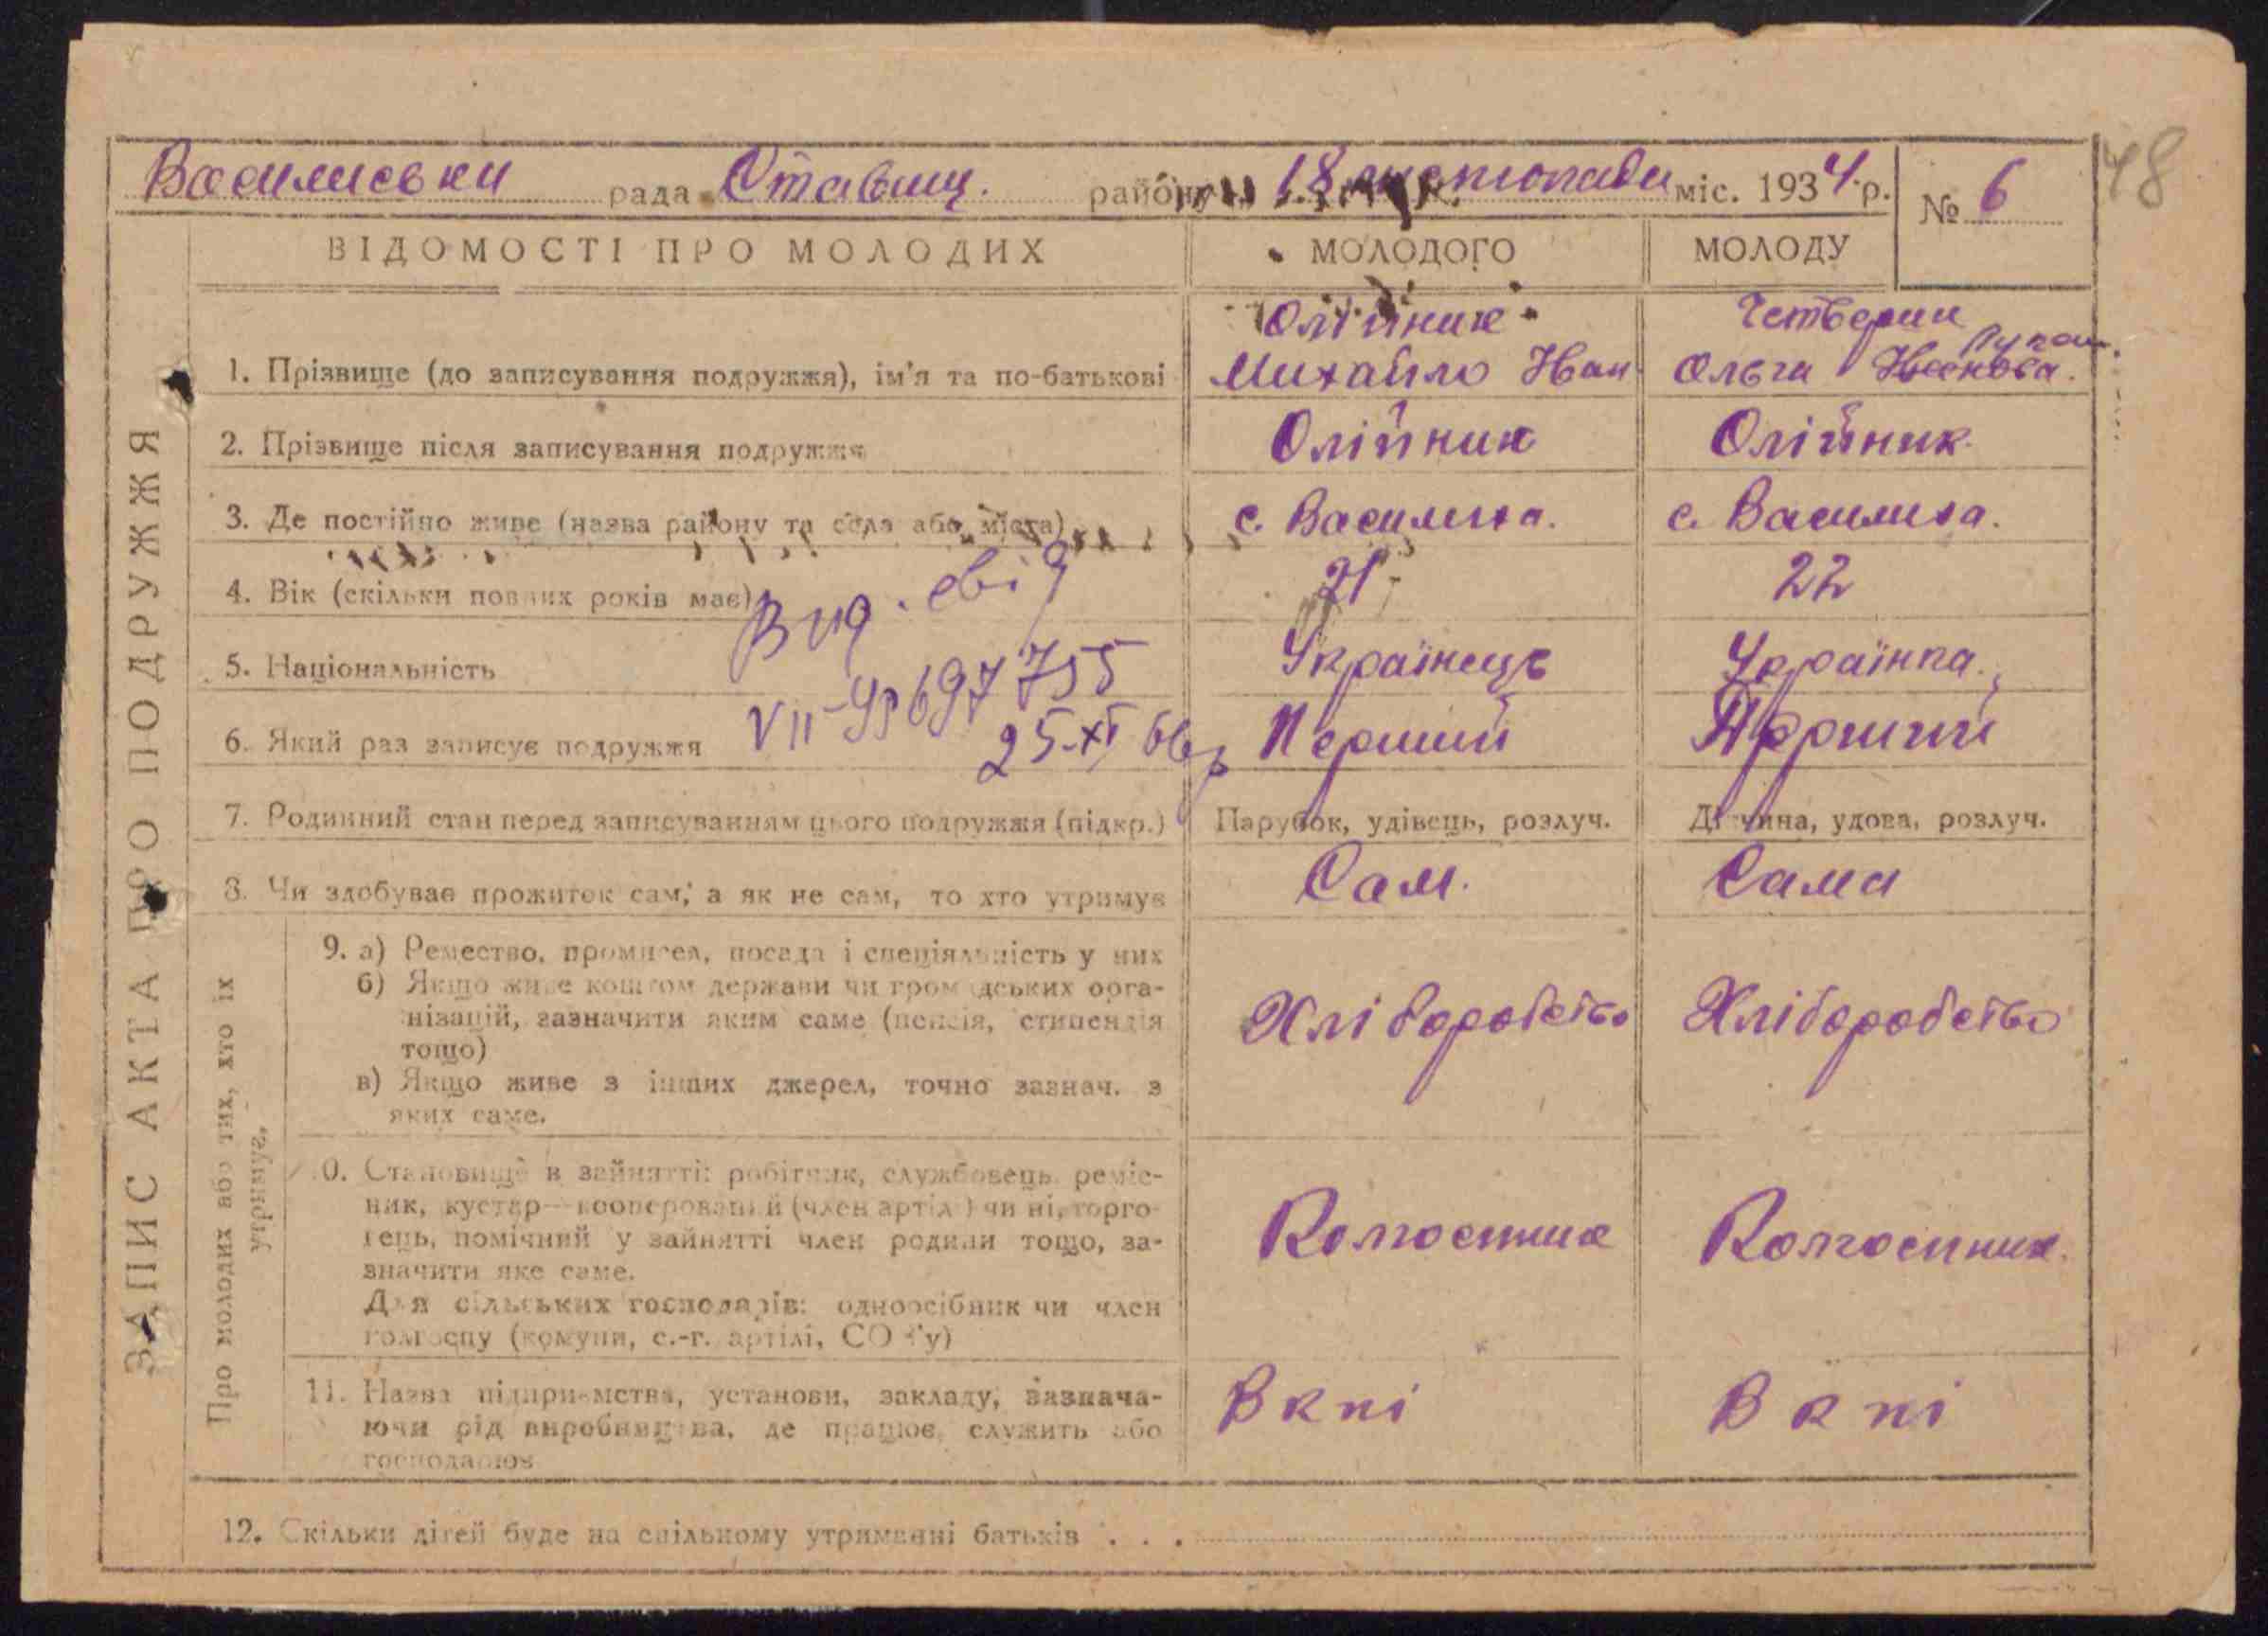 48
Василиськи рада Ставищ. району 18 листопада міс. 1934 р. № 6
ЗАПИС АКТА ПРО ПОДРУЖЖЯ
ВІДОМОСТІ ПРО МОЛОДИХ МОЛОДОГО МОЛОДУ
Олійник Четверик
1. Прізвище (до записування подружжя), ім'я та по-батькові Михайло Іван Ольга
2. Прізвище після записування подружжя Олійник Олійник
3. Де постійно живе (назва району та села або міста) с. Василиха. с. Василиха.
4. Вік (скільки повних років має) 21 22
Вид. свід
5. Національність Українець Українка.
VII-УР 697755
6. Який раз записує подружжя Перший Перший
25-XI 66р
7. Родинний стан перед записуванням цього подружжя (підкр.) Парубок, удівець, розлуч. Дівчина, удова, розлуч.
8. Чи здобуває прожиток сам, а як не сам, то хто утримує Сам. Сама
Про молодих або тих, хто їх
утримує.
9. а) Ремество, промисел, посада і спеціяльність у них
б) Якщо живе коштом держави чи громадських орга-
нізацій, зазначити яким саме (пенсія, стипендія
тощо)
Хліборобство Хліборобство
в) Якщо живе з інших джерел, точно зазнач. з
яких саме.
10. Становище в зайнятті: робітник, службовець, реміс-
ник, кустар—кооперований (член артілі) чи ні, торго-
вець, помічний у зайнятті член родини тощо, за-
значити яке саме.
Колгоспник Колгоспник.
Для сільських господарів: одноосібник чи член
колгоспу (комуни, с.-г. артілі, СОЗ'у)
11. Назва підприємства, установи, закладу, зазнача-
ючи рід виробництва, де працює, служить або
господарює
В к пі В к пі
12. Скільки дітей буде на спільному утриманні батьків . . .